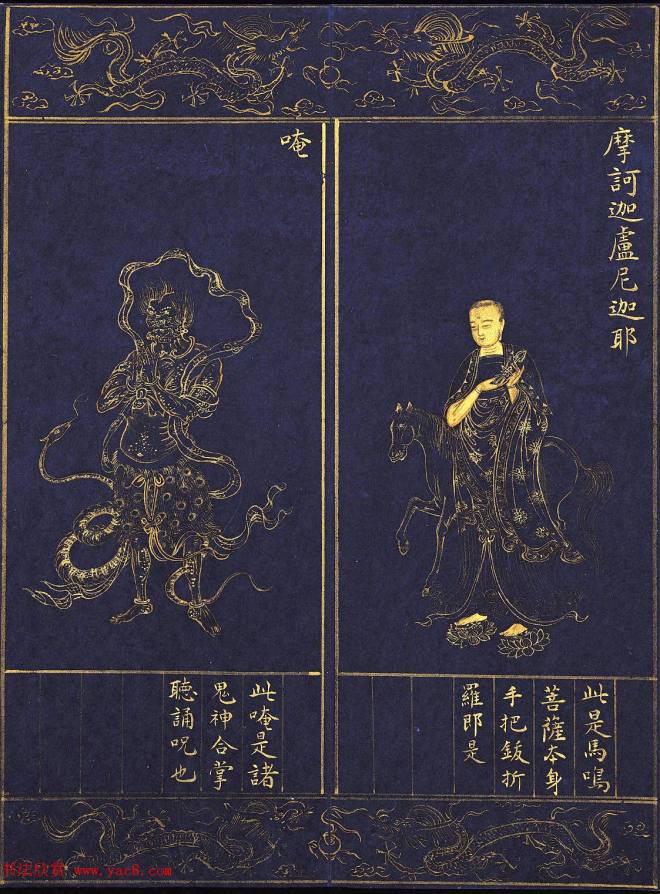 摩訶迦盧尼迦耶
此是馬鳴
菩薩本身
手把鈸折
羅即是
唵
此唵是諸
鬼神合掌
聽誦呪也
书法欣赏 www.yac8.com